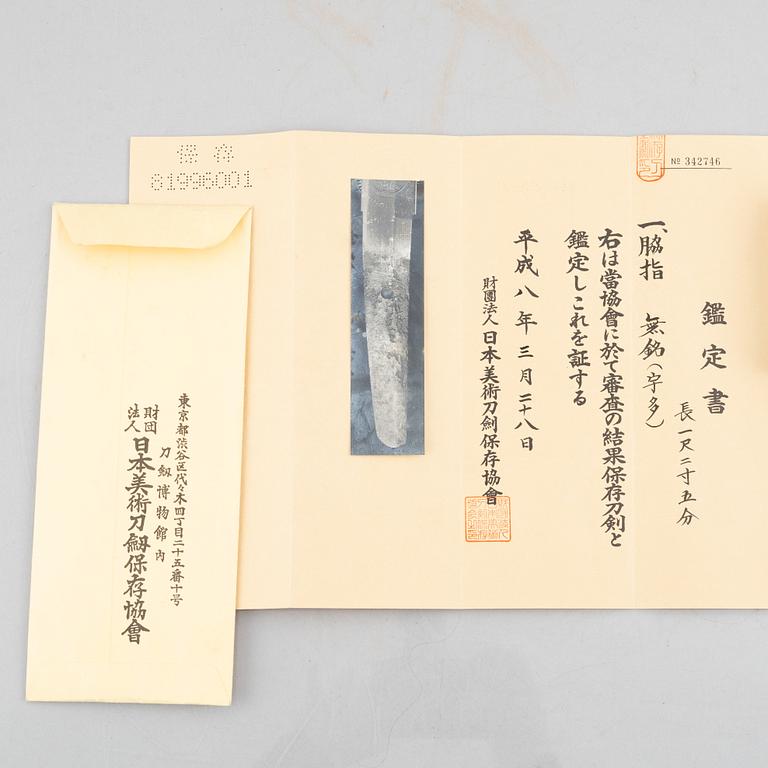 保存
81996001
№ 342746
鑑定書
一、脇指 無銘(宇多)
長一尺二寸五分
右は當協會に於て審査の結果保存刀剣と
鑑定しこれを証する
平成八年三月二十八日
財團法人 日本美術刀劍保存協會
東京都渋谷区代々木四丁目二十五番十号
刀劔博物館内
財団法人 日本美術刀劔保存協會